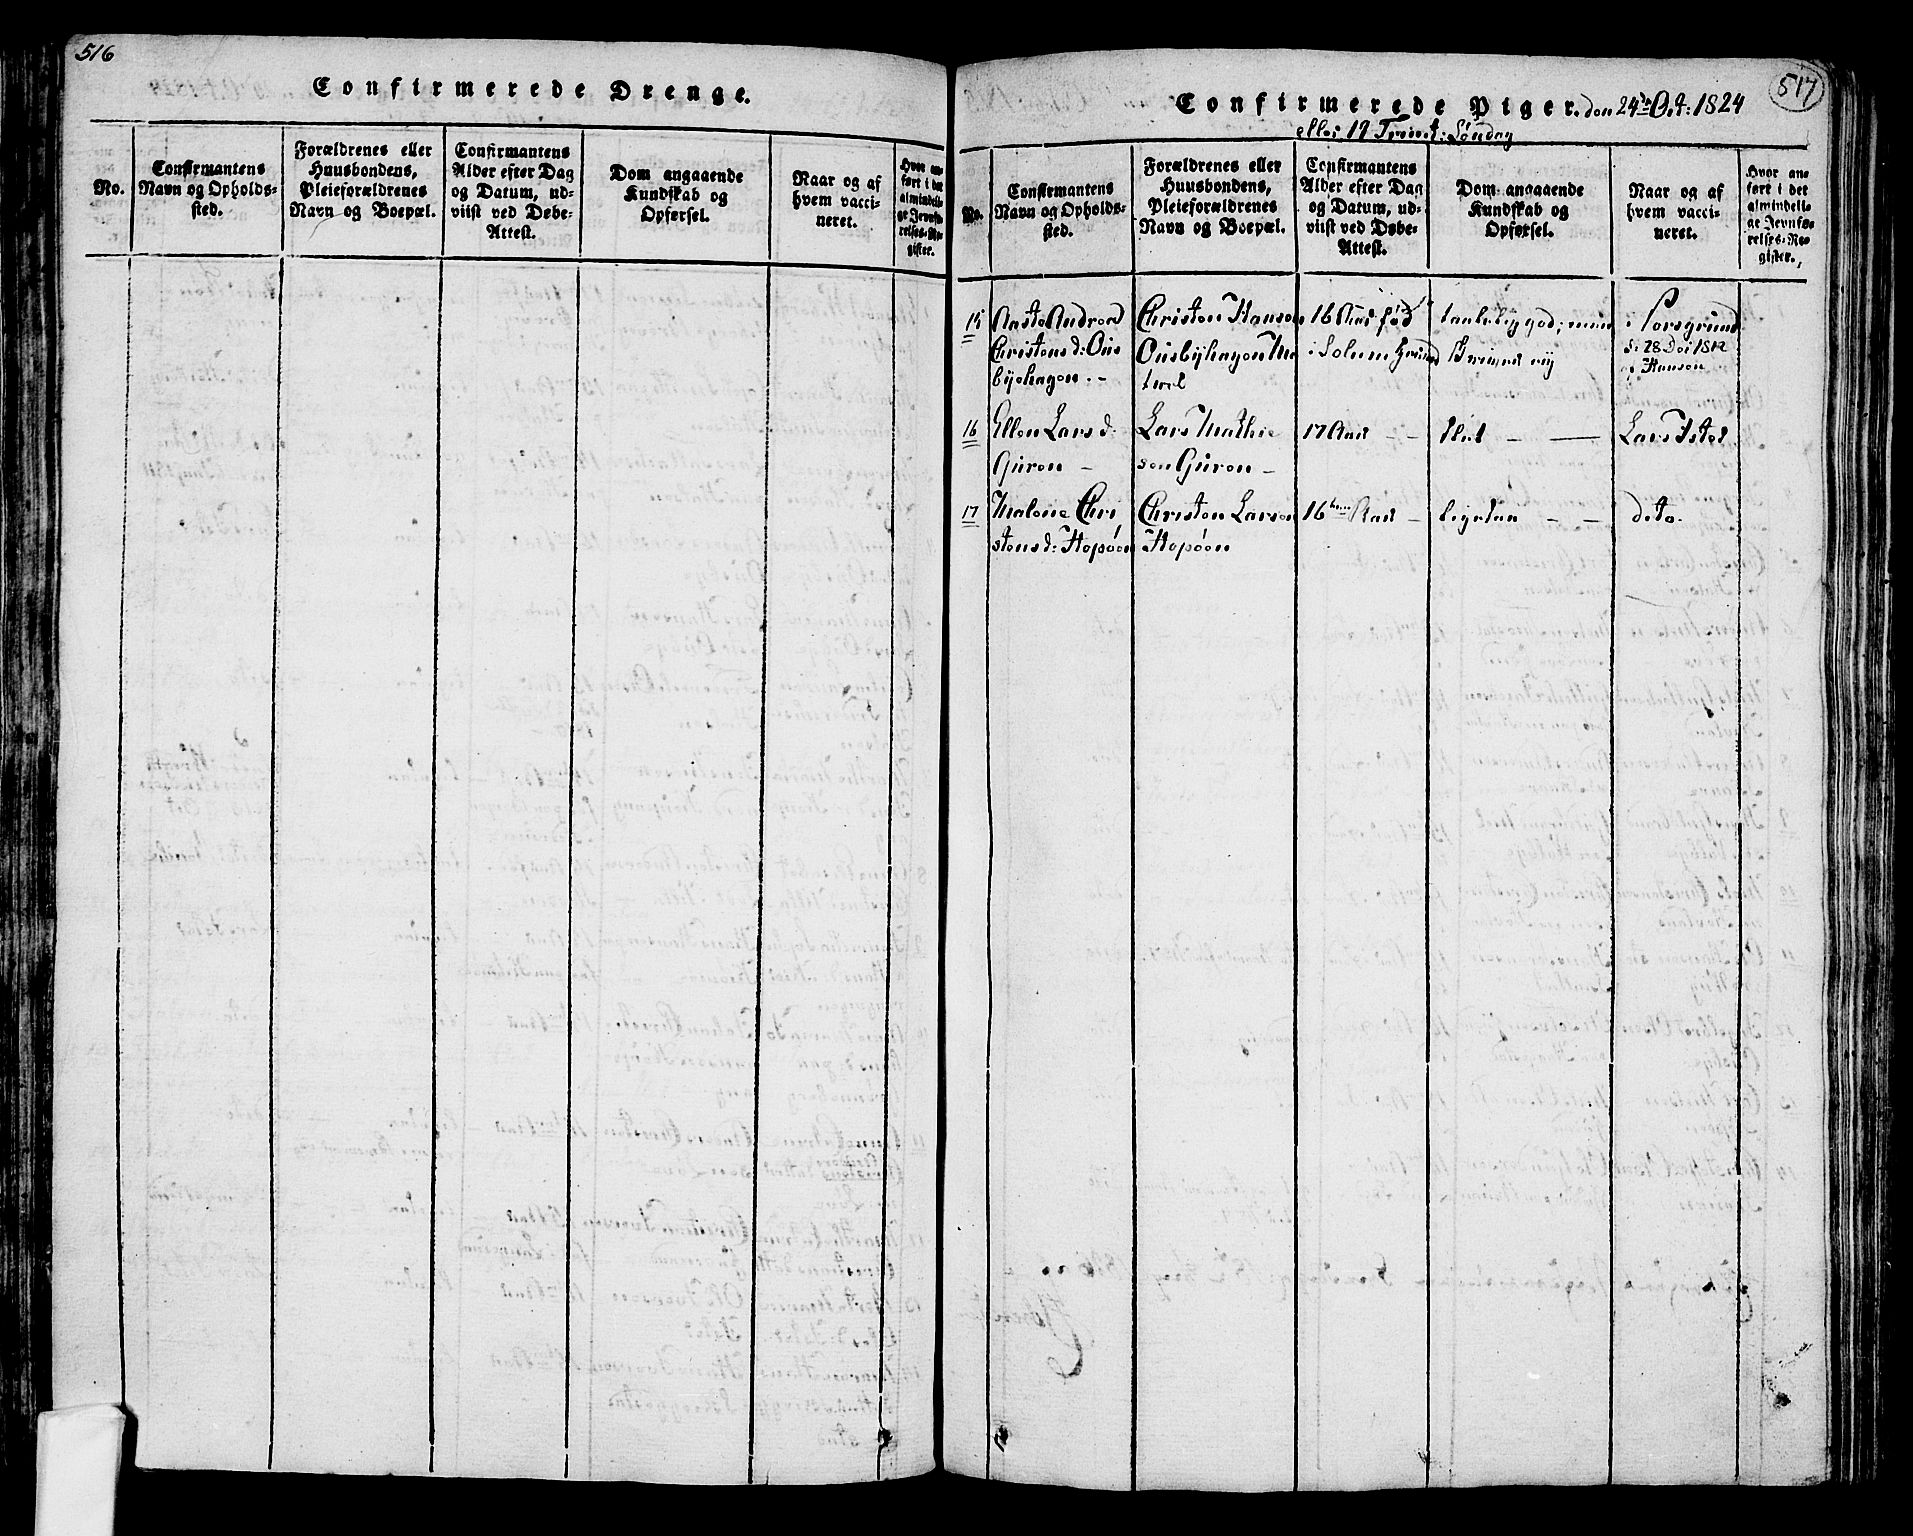 516
Confirmerede Drenge.
No.
Confirmantens Navn og Opholds-
sted.
Forældrenes eller
Huusbondens,
Pleieforældrenes
Navn og Boepæl.
Confirmantens
Alder efter Dag
og Datum, ud-
viist ved Døbe-
Attest.
Dom angaaende
Kundskab og
Opførsel.
Naar og af
hvem vacci-
neret.
Hvor an-
ført i det
almindeli-
ge Jevnfø-
relses-Re-
gister.
517
Confirmerede Piger. den 24de Oct: 1824
eller 19 Trinit: Søndag
No.
Confirmantens
Navn og Opholds-
sted.
Forældrenes eller
Huusbondens,
Pleieforældrenes
Navn og Boepæl.
Confirmantens
Alder efter Dag
og Datum, ud-
viist ved Døbe-
Attest.
Dom angaaende
Kundskab og
Opførsel.
Naar og af
hvem vacci-
neret.
Hvor an-
ført i det
almindeli-
ge Jevnfø-
relses-Re-
gister.
15 Christen Hansen 16 Aar fød i Porsgrund
Christensd: Ous
byehagen. - i Solum
af Hansen
16 Ellen Larsd: Lars Mathie 17 Aar - - - - Lars Isted
Guren - sen Guren -
17 Malene Chri Christen Larsen 16 Aar - - - dito.
stensd: Hopsøen Hopsøen